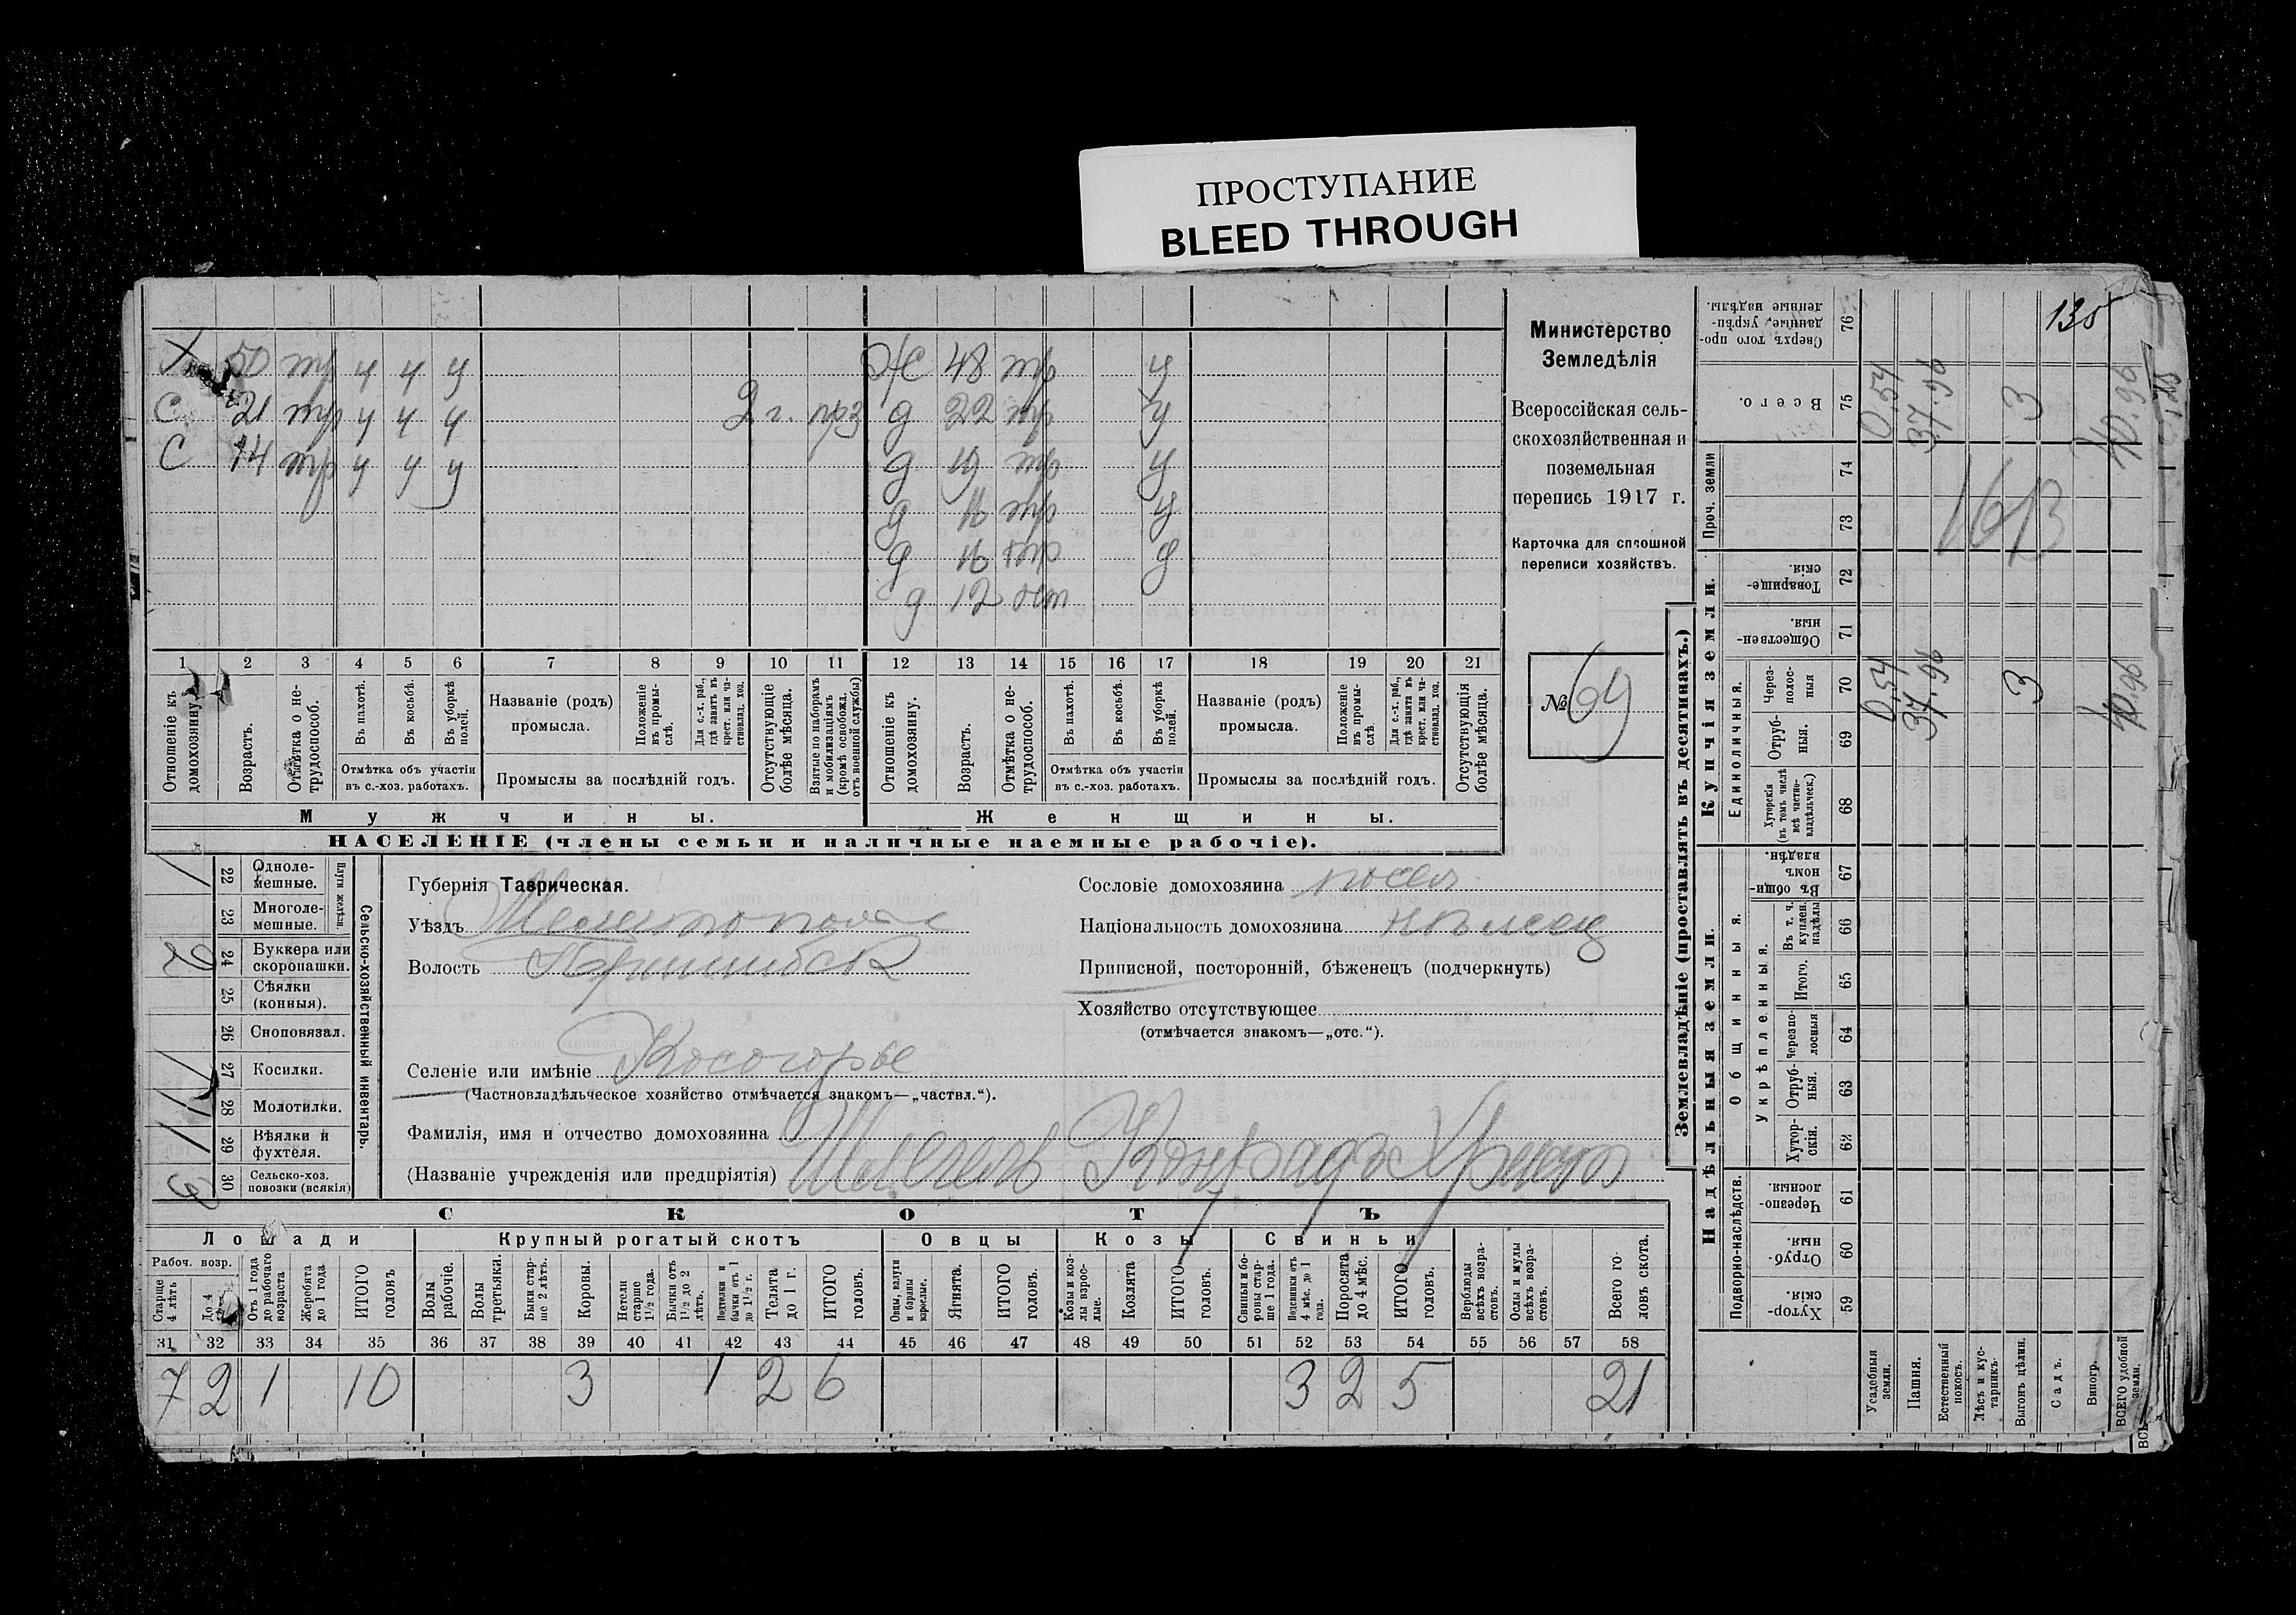 ПРОСТУПАНИЕ
BLEED THROUGH
135
Х 50 тр у у у Ж 48 тр у
С 21 тр у у у 2 г. прз д 22 тр у
С 14 тр у у у д 19 тр у
д 16 тр у
д 16 тр у
д 12 
1 2 3 4 5 6 7 8 9 10 11 12 13 14 15 16 17 18 19 20 21
Отношеніе къ домохозяину.
Возрастъ.
Отмѣтка о нетрудоспособ.
Въ пахотѣ.
Въ косьбѣ.
Въ уборкѣ полей.
Отмѣтка объ участіи
въ с.-хоз. работахъ.
Названіе (родъ)
промысла.
Положеніе въ промыслѣ.
Для с.-х. раб., гдѣ занятъ въ крест. или частновлад. хоз.
Промыслы за послѣдній годъ.
Отсутствующіе болѣе мѣсяца.
Взятые по наборамъ и мобилизаціямъ (кромѣ освобожд. отъ военной службы)
Отношеніе къ домохозяину.
Возрастъ.
Отмѣтка о нетрудоспособ.
Въ пахотѣ.
Въ косьбѣ.
Въ уборкѣ полей.
Отмѣтка объ участіи
въ с.-хоз. работахъ.
Названіе (родъ)
промысла.
Положеніе въ промыслѣ.
Для с.-х. раб., гдѣ занята въ крест. или частновлад. хоз.
Промыслы за послѣдній годъ.
Отсутствующія болѣе мѣсяца.
Мужчины.
Женщины.
НАСЕЛЕНІЕ (члены семьи и наличные наемные рабочіе).
Министерство
Земледѣлія
Всероссійская сель-
скохозяйственная и
поземельная
перепись 1917 г.
Карточка для сплошной
переписи хозяйствъ.
№ 64
Сельско-хозяйственный инвентарь.
Плуги желѣзн.
1 22 Одноле-
мешные.
23 Многоле-
мешные.
2 24 Буккера или
скоропашки.
25 Сѣялки
(конныя).
26 Сноповязал.
1 27 Косилки.
1 28 Молотилки.
1 29 Вѣялки и
фухтеля.
3 30 Сельско-хоз.
повозки (всякія)
Губернія Таврическая.
Уѣздъ Мелитопольс
Волость Пришибск
Селеніе или имѣніе Косогорье
(Частновладѣльческое хозяйство отмѣчается знакомъ—„частвл.“).
Фамилія, имя и отчество домохозяина
(Названіе учрежденія или предпріятія) Шлегель Конрадъ Христ
Сословіе домохозяина посел.
Національность домохозяина нѣмец
Приписной, посторонній, бѣженецъ (подчеркнуть)
Хозяйство отсутствующее
(отмѣчается знакомъ—„отс.“).
СКОТЪ
Лошади
Крупный рогатый скотъ
Овцы
Козы
Свиньи
Рабоч. возр.
Старше 4 лѣтъ
До 4 лѣтъ
Отъ 1 года до рабочаго возраста
Жеребята до 1 года
ИТОГО головъ
Волы рабочіе.
Волы третьяки.
Быки старше 2 лѣтъ.
Коровы.
Нетели старше 1½ года.
Бычки отъ 1½ до 2 лѣтъ.
Подтелки и бычки отъ 1 до 1½ г.
Телята до 1 г.
ИТОГО головъ.
Овцы, валухи и бараны взрослые.
Ягнята.
ИТОГО головъ.
Козы и козлы взрослые.
Козлята
ИТОГО головъ.
Свиньи и боровы старше 1 года.
Подсвинки отъ 4 мѣс. до 1 года.
Поросята до 4 мѣс.
ИТОГО головъ.
Верблюды всѣхъ возрастовъ.
Ослы и мулы всѣхъ возрастовъ.
Всего головъ скота.
31 32 33 34 35 36 37 38 39 40 41 42 43 44 45 46 47 48 49 50 51 52 53 54 55 56 57 58
7 2 1 10 3 1 2 6 3 2 5 21
Землевладѣніе (проставлять въ десятинахъ.)
Надѣльныя земли.
Купчія земли.
Проч. земли
Подворно-наслѣдств.
Общинныя.
Укрѣпленныя.
Единоличныя.
Хуторскія. 59
Отрубныя. 60
Черезполосныя. 61
Хуторскія. 62
Отрубныя. 63
Черезполосныя 64
Итого. 65
Въ т. ч. куплен. надѣлы 66
Въ общинномъ владѣн. 67
Хуторскія (въ томъ числѣ всѣ частновладѣльческ.) 68
Отрубныя. 69
Черезполосныя 70
Общественныя. 71
Товарищескія. 72
73
74
Всего. 75
Сверхъ того проданные, укрѣпленные надѣлы. 76
Усадебныя земли. 0,54 0.54
Пашня. 37.96 37.96
Естественный покосъ.
Лѣсъ и кустарникъ.
Выгонъ цѣлин. 3 3
Садъ.
Виногр.
ВСЕГО удобной земли.
1613